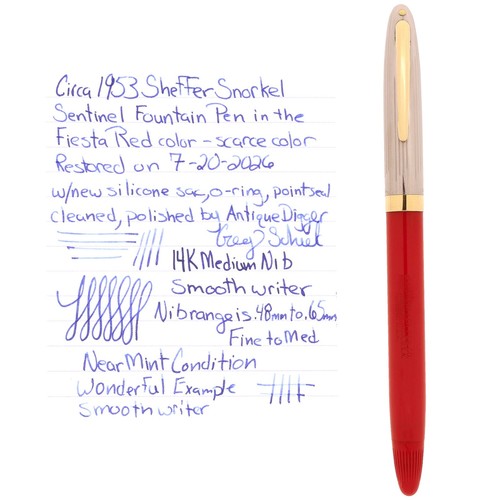 Circa 1953 Sheffer Snorkel
Sentinel Fountain Pen in the
Fiesta Red color - scarce color
Restored on 7-20-2026
w/new silicone sac, o-ring, point seal
cleaned, polished by Antique Digger
Greg
14K Medium Nib
Smooth writer
Nib range is .48mm to .65mm
Fine to Med
Near Mint Condition
Wonderful Example
Smooth writer